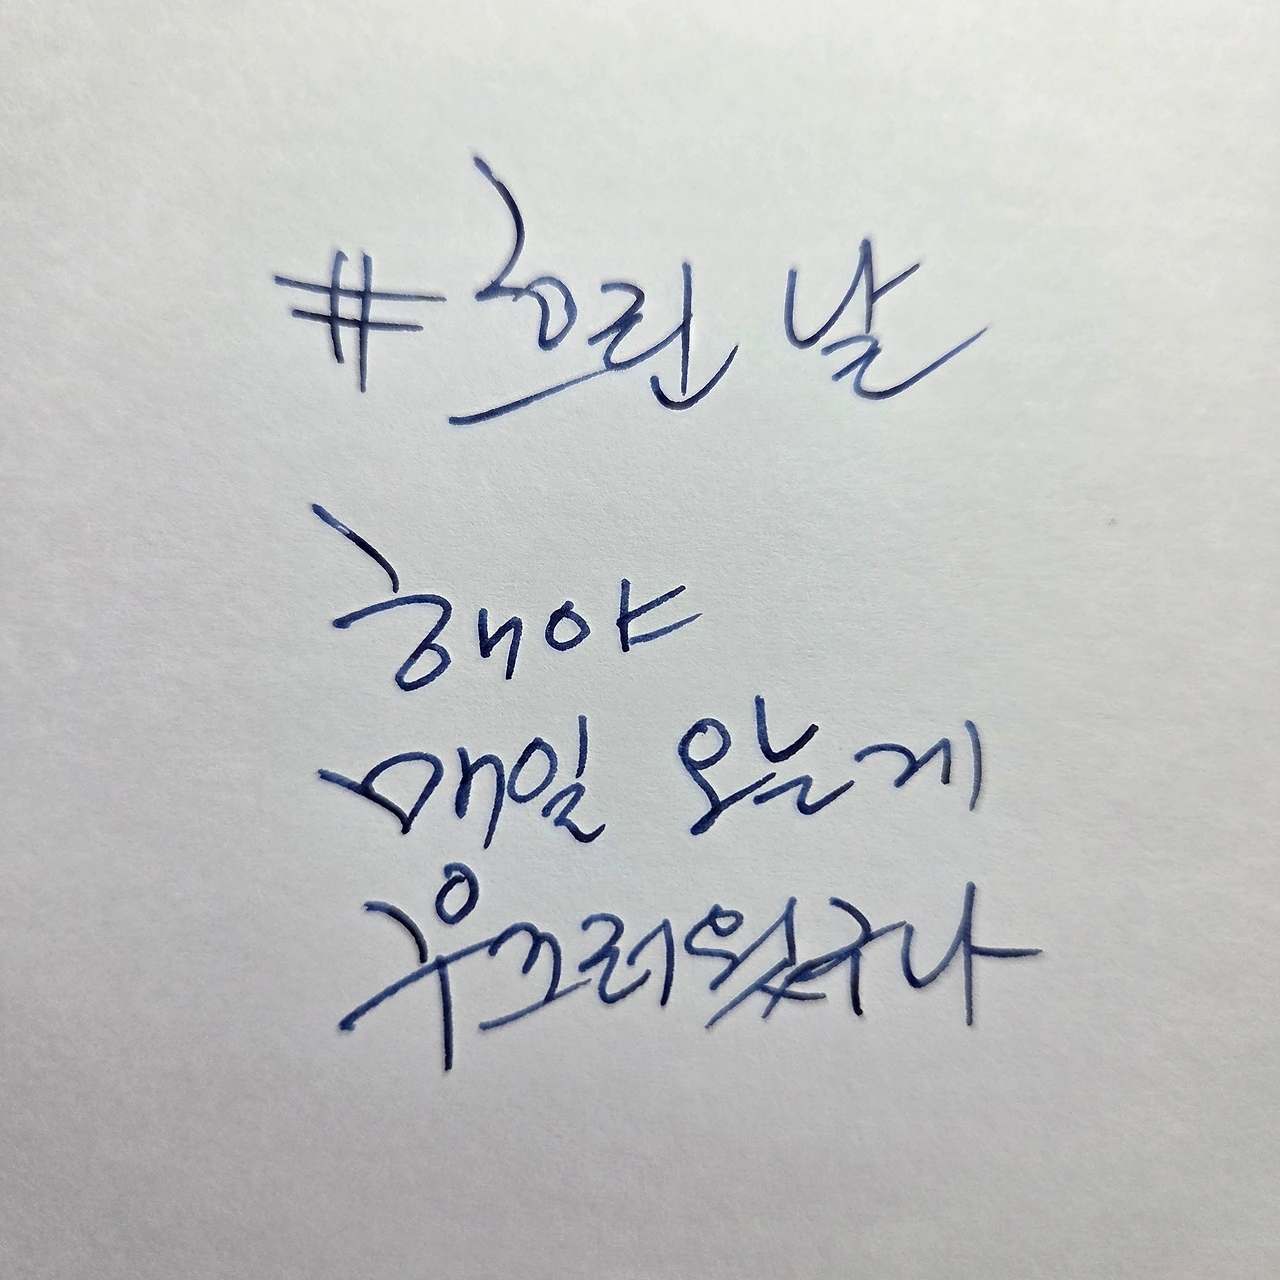 #흐린 날
해야
매일 오는게
부끄러웠구나